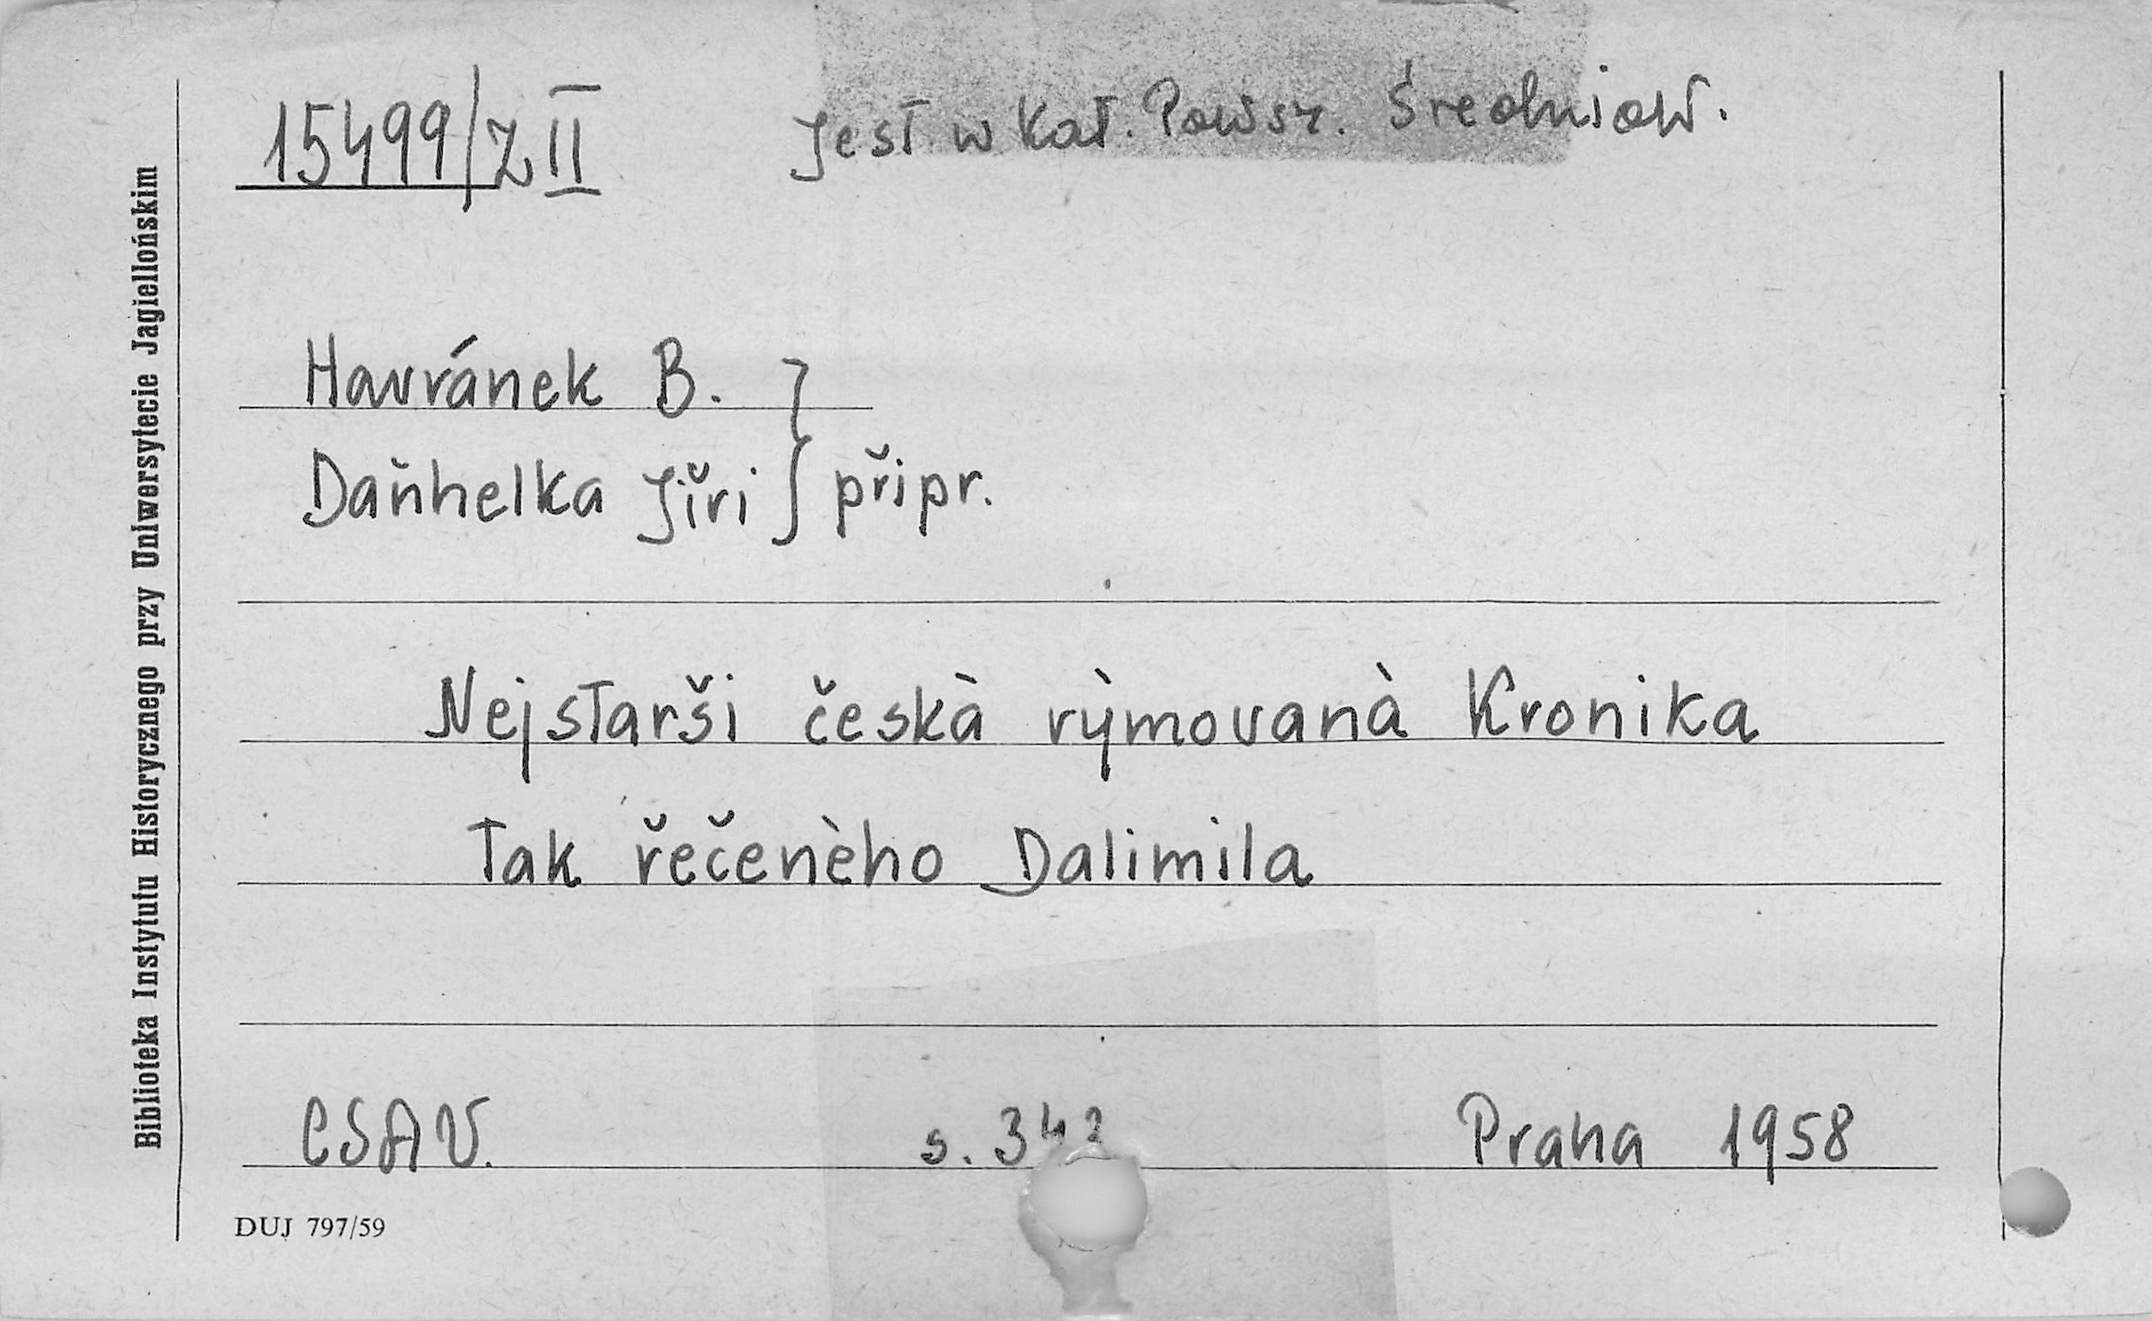 15499/Z II
Jest w Kat. Powsz. Średniow.
Havránek B. }
Daňhelka Jiři } připr.
Nejstarši českà rỳmovanà Kronika
Tak řečenèho Dalimila
CSAV. s. 342 Praha 1958
DUJ 797/59
Biblioteka Instytutu Historycznego przy Uniwersytecie Jagiellońskim